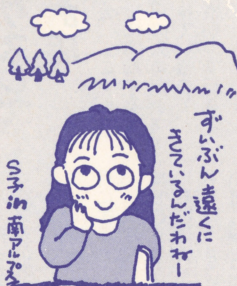 ずいぶん遠くに
きているんだわねー
S子in南アルプス